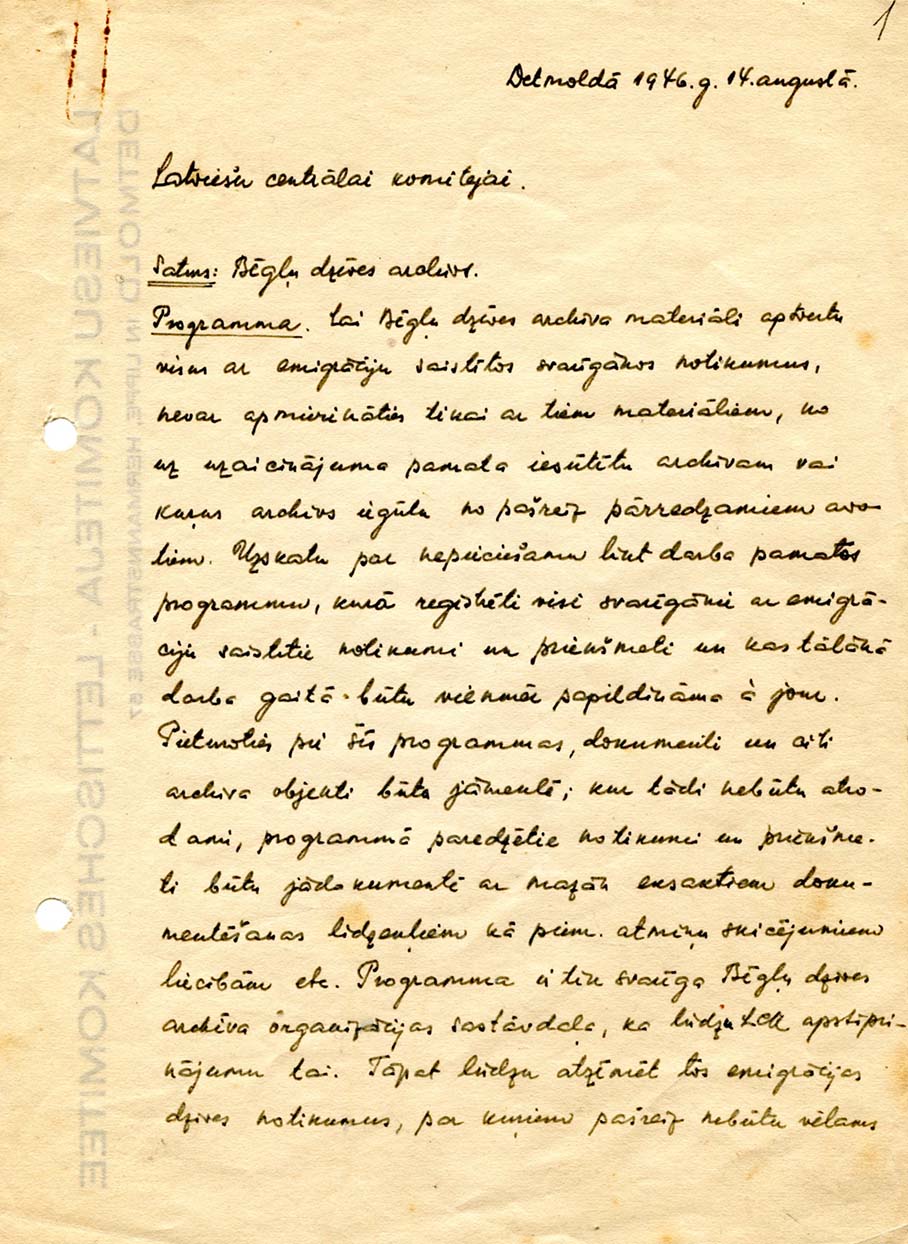 1
Detmoldā 1946.g. 14.augustā.
Latviešu centrālai komitejai.
Saturs: Bēgļu dzīves archivs.
Programma. Lai Bēgļu dzīves archiva materiāli aptvertu
visus ar emigrāciju saistītos svarīgākos notikumus,
nevar apmierināties tikai ar tiem materiāliem, ko
uz uzaicinājuma pamata iesūtītu archivam vai
kuŗus archivs iegūtu no pašreiz pārredzamiem avo-
tiem. Uzskatu par nepieciešamu likt darba pamatos
programmu, kurā reģistrēti visi svarīgākie ar emigrā-
ciju saistītie notikumi un priekšmeti un kas tālākā
darba gaitā būtu vienmēr papildināma à jour.
Pieturoties pie šīs programmas, dokumenti un citi
archiva objekti būtu jāmeklē; kur tādi nebūtu atro-
dami, programmā paredzētie notikumi un priekšme-
ti būtu jādokumentē ar mazāk eksaktiem doku-
mentēšanas līdzekļiem kā piem. atmiņu skicējumiem
liecībām etc. Programma ir tik svarīga Bēgļu dzīves
archīva organizācijas sastāvdaļa, ka lūdzu LCK apstipri-
nājumu tai. Tāpat lūdzu atzīmēt tos emigrācijas
dzīves notikumus, par kuŗiem pašreiz nebūtu vēlams
LATVIEŠU KOMITEJA - LETTISCHES KOMITEE
DETMOLD IN LIPPE HERMANNSTRASSE 57